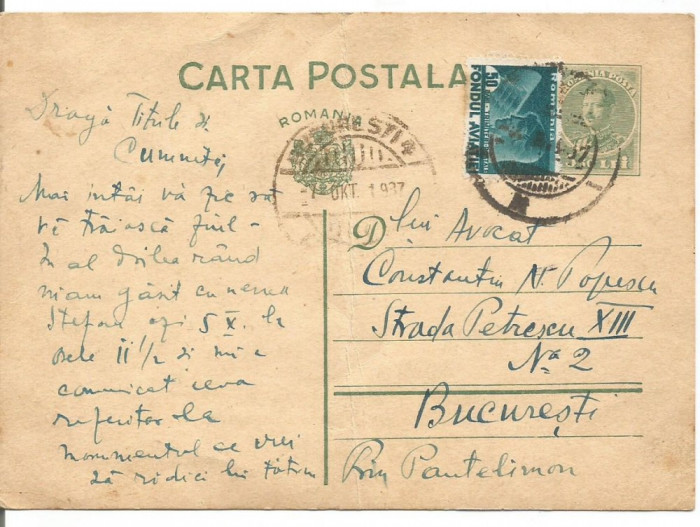 CARTA POSTALA
ROMANIA
50 B
ROMANIA
FONDUL AVIAȚIEI
ROMANIA POSTA
1 OKT. 1937
Dragă Titule și
Mai întâi vă fie să
vă trăiască fiul –
În al doilea rând
m'am găsit cu nenea
Ștefan azi 5 X. la
orele 11 1/2 și mi a
comunicat ceva
referitor la
monumentul ce vrei
să ridici lui tătun
Dlui Avocat
Constantin N. Popescu
Strada Petrescu XIII
No 2
București
Prin Pantelimon